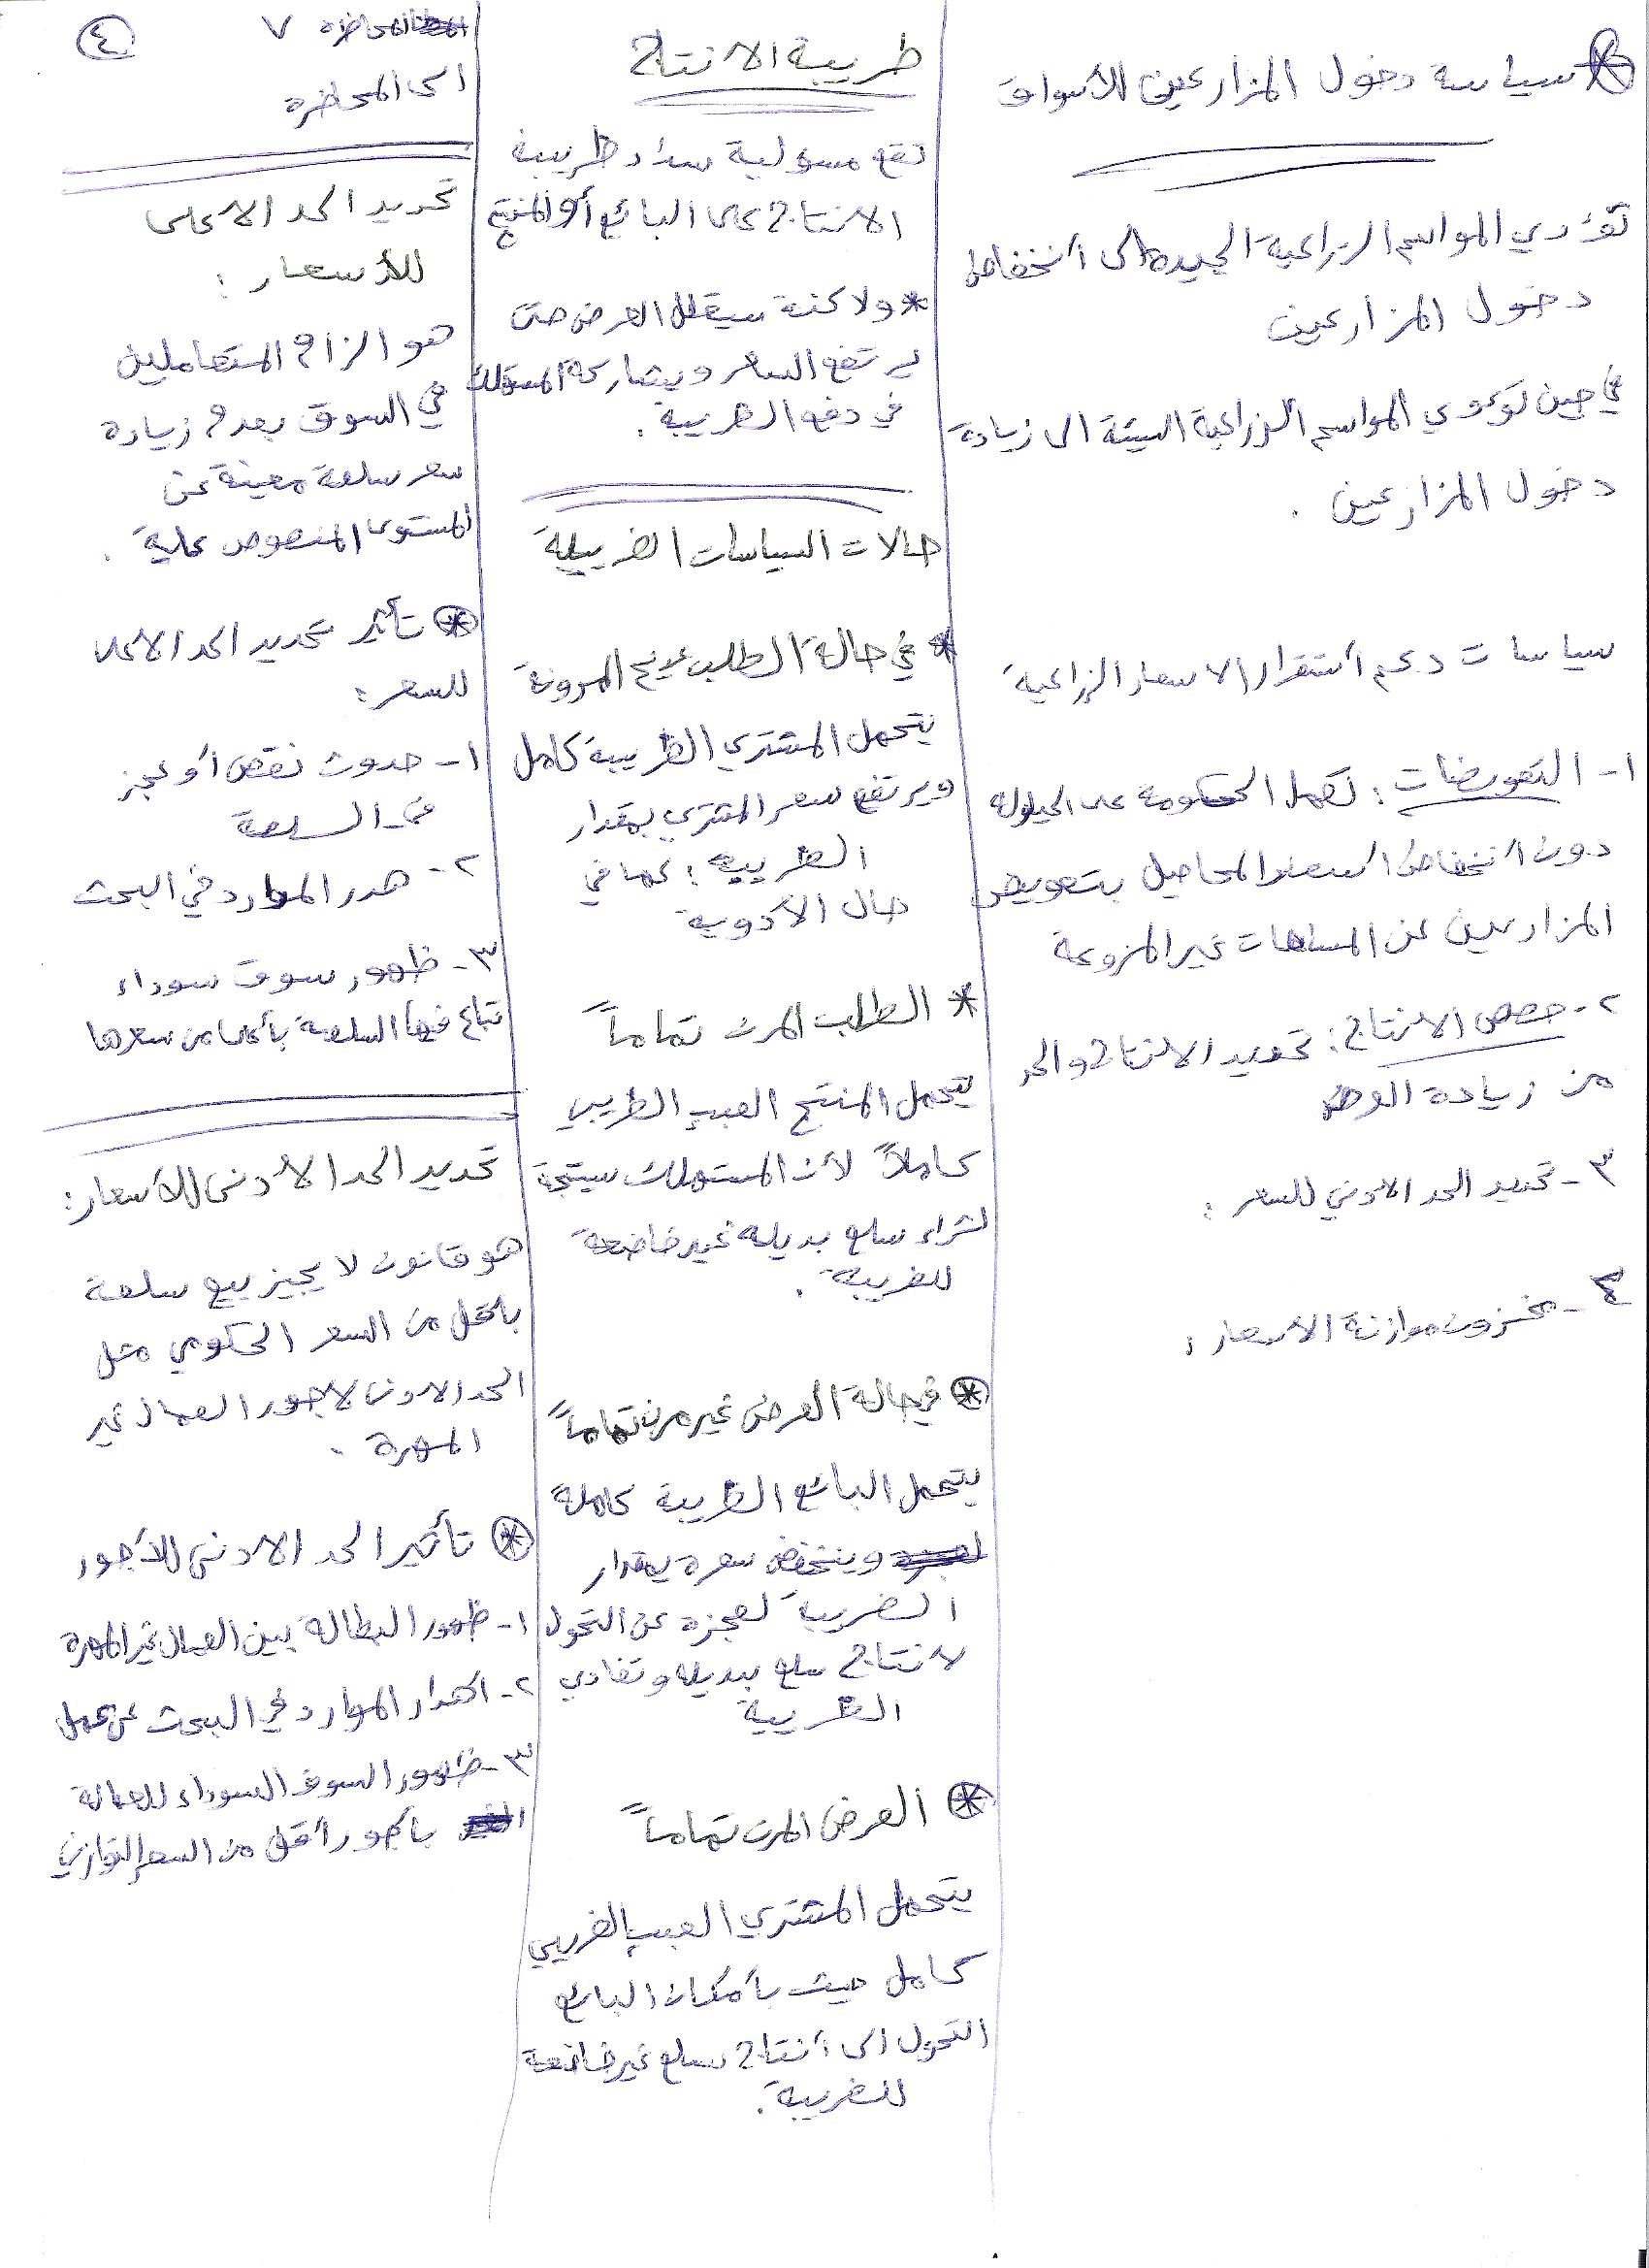 سياسة دخول المزارعين للأسواق
تؤدي المواسم الزراعية الجيدة الى أنخفاض
دخول المزارعين
في حين تؤدي المواسم الزراعية السيئة الى زيادة
دخول المزارعين .
سياسات دعم أستقرار الاسعار الزراعية
١- التعويضات : تعمل الحكومة على الحيلولة
دون أنخفاض اسعار المحاصيل بتعويض
المزارعين عن المساحات غير المزروعة
٢- حصص الانتاج : تحديد الانتاج والحد
من زيادة العرض
٣- تحديد الحد الادنى للسعر :
٤- مخزون موازنة الاسعار :
ظريبة الانتاج
تقع مسولية سداد ظريبة
الانتاج على البائع أو المنتج
* ولاكنة سيقلل العرض حتى
يرتفع السعر ويشاركة المستهلك
في دفع الظريبة .
حالات السياسات الضريبية
* في حالة الطلب عديم المرونة
يتحمل المشتري الظريبة كامل
ويرتفع سعر المشتري بمقدار
الظريبة : كما في
حال الأدوية
* الطلب المرن تماماً
يتحمل المنتج العبب الظريبي
كاملاً لأن المستهلك سيتجة
لشراء سلع بديلة غير خاضعة
للضريبة .
في حالة العرض غير مرن تماماً
يتحمل البائع الظريبة كاملة
وينخفض سعرة بمقدار
الضريبة لعجزة عن التحول
لانتاج سلع بديلة وتفادي
الظريبة
العرض المرن تماماً
يتحمل المشتري العبب الضريبي
كامل حيث بأمكان البائع
التحول الى أنتاج سلع غير خاضعة
للضريبة .
٤
المحاضرة ٧
الى المحاضرة
تحديد الحد الاعلى
للأسعار :
هو الزام المتعاملين
في السوق بعدم زيادة
سعر سلعة معينة عن
المستوى المنصوص علية .
تأثير تحديد الحد الاعلى
للسعر :
١- حدوث نقص أو عجز
في السلعة
٢- هدر الموارد في البحث
٣- ظهور سوق سوداء
تباع فيها السلعة بأعلى من سعرها
تحديد الحد الأدنى للأسعار :
هو قانون لا يجيز بيع سلعة
بأقل من السعر الحكومي مثل
الحد الادنى لاجور العمال غير
المهرة .
تأثير الحد الادنى للأجور
١- ظهور البطالة بين العمال غير المهرة
٢- اهدار الموارد في البحث عن عمل
٣- ظهور السوق السوداء للعمالة
بأجور أقل من السعر التوازني